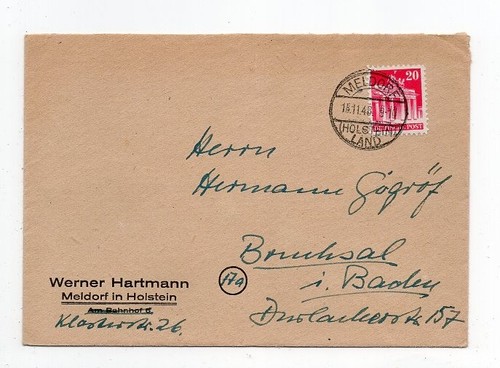 20
DEUTSCHE POST
MELDORF
15.11.48
(HOLSTEIN)
LAND
Herrn
Hermann Gögröf
Bruchsal
17a
i. Baden
Durlacherstr. 157
Werner Hartmann
Meldorf in Holstein
Am Bahnhof 6
Klosterstr. 26.